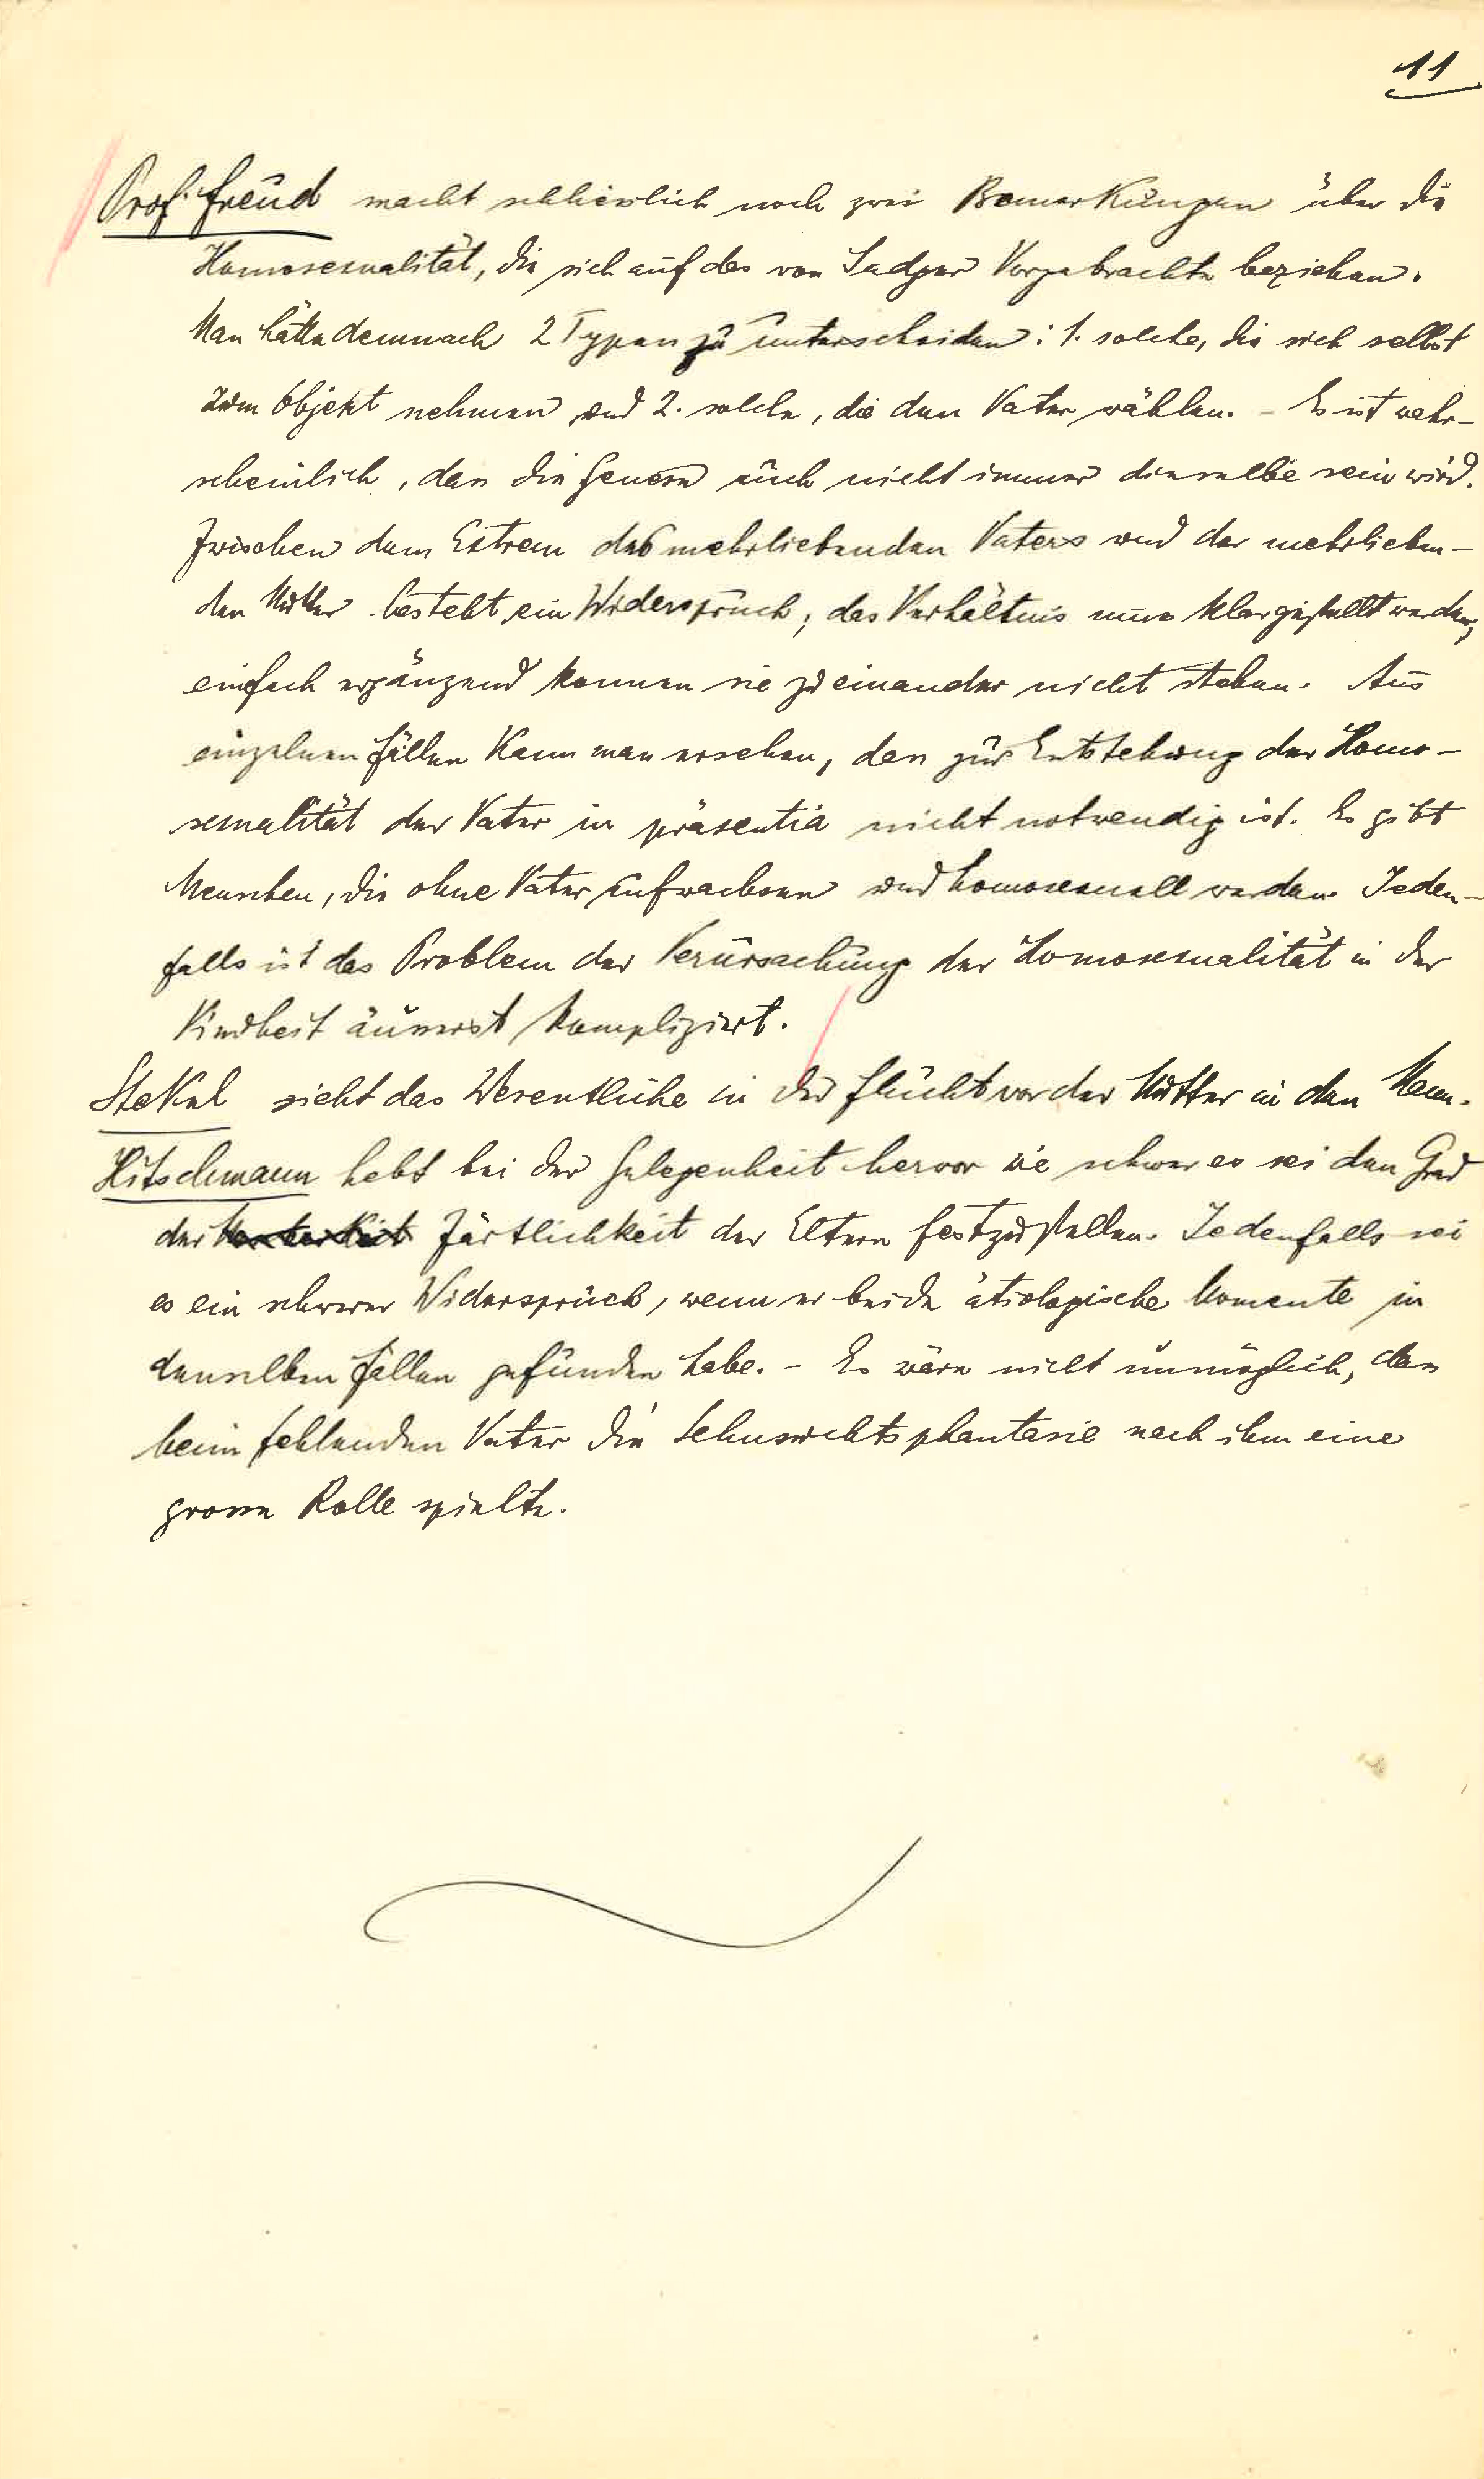 11
Prof. Freud macht schliesslich noch zwei Bemerkungen über die
Homosexualität, die sich auf das von Sadger Vorgebrachte beziehen.
Man hätte demnach 2 Typen zu unterscheiden: 1. solche, die sich selbst
zum Objekt nehmen und 2. solche, die den Vater wählen. – Es ist wahr-
scheinlich, dass die Genese auch nicht immer dieselbe sein wird.
Zwischen dem Extrem des mehrliebenden Vaters und der mehrlieben-
den Mutter besteht ein Widerspruch; das Verhältnis muss klargestellt werden;
einfach ergänzend können sie zu einander nicht stehen. Aus
einzelnen Fällen kann man ersehen, dass zur Entstehung der Homo-
sexualität der Vater in präsentia nicht notwendig ist. Es gibt
Menschen, die ohne Vater aufwachsen und homosexuell werden. Jeden-
falls ist das Problem der Verursachung der Homosexualität in der
Kindheit äusserst kompliziert.
Stekel sieht das Wesentliche in der Flucht vor der Mutter in den Mann.
Hitschmann hebt bei der Gelegenheit hervor wie schwer es sei den Grad
der Zärtlichkeit der Eltern festzustellen. Jedenfalls sei
es ein schwerer Widerspruch, wenn er beide ätiologische Momente in
denselben Fällen gefunden habe. – Es wäre nicht unmöglich, dass
beim fehlenden Vater die Sehnsuchtsphantasie nach ihm eine
grosse Rolle spielte.